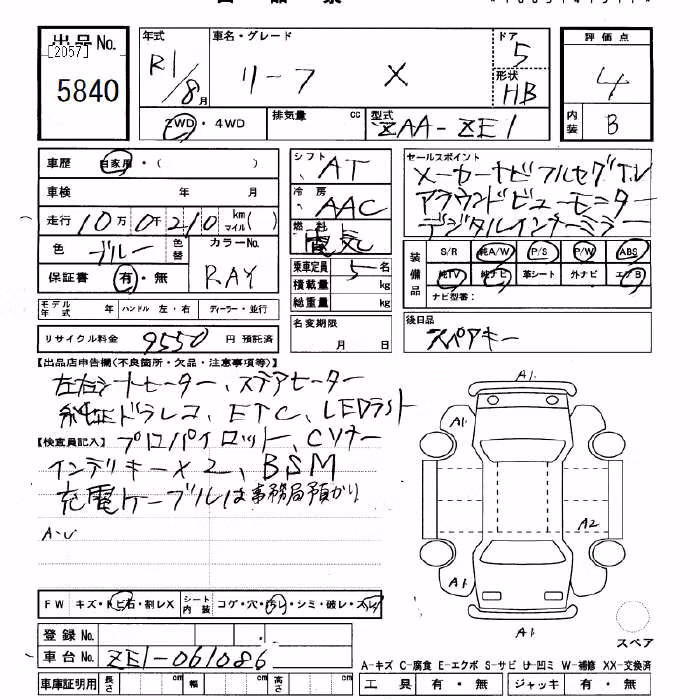 出品No.
[2057]
5840
年式 R1/8月
車名・グレード リーフ X
ドア 5
形状 HB
2WD・4WD
排気量 cc
型式 ZAA-ZE1
評価点 4
内装 B
車歴 自家用・( )
車検 年 月
走行 10万0千210 kmマイル( )
色 ブルー 色替 カラーNo. RAY
保証書 有・無
モデル年式 年 ハンドル 左・右 ディーラー・並行
リサイクル料金 9550 円 預託済
シフト AT
冷房 AAC
燃料 電気
乗車定員 5名
積載量 kg
総重量 kg
名変期限 月 日
セールスポイント
メーカーナビフルセグTV
アラウンドビューモニター
デジタルインナーミラー
装備品 S/R 純A/W P/S P/W ABS
純TV 純ナビ 革シート 外ナビ エアB
ナビ型番:
後日品
スペアキー
【出品店申告欄(不良箇所・欠品・注意事項等)】
左右シートヒーター、ステアヒーター
純正ドラレコ、ETC、LEDライト
【検査員記入】プロパイロット、Cソナー
インテリキー×2、BSM
充電ケーブルは事務局預かり
A・U
FW キズ・トビ石・割レX シート内装 コゲ・穴・汚レ・シミ・破レ・スレ
登録No.
車台No. ZE1-061086
車庫証明用 長さ cm 幅 cm 高さ cm
A1
A1
A2
A1
A1
A1
スペア
A-キズ C-腐食 E-エクボ S-サビ U-凹ミ W-補修 XX-交換済
工具 有・無 ジャッキ 有・無